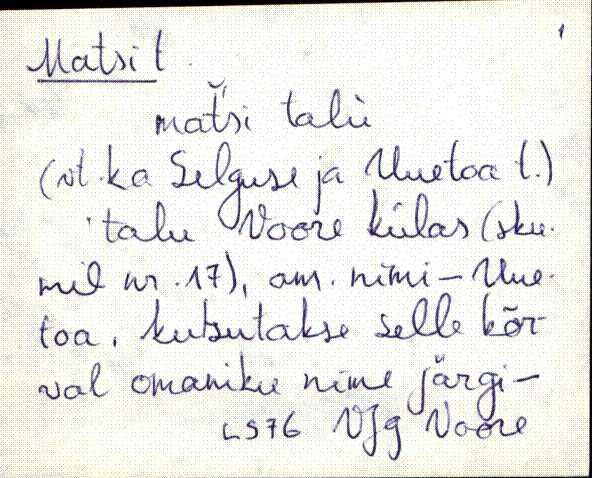 1
Matsi t.
matsi talu
(vt. ka Selguse ja Uuetoa t.)
talu Voore külas (sku.
mil nr. 17), am. nimi - Uue-
toa. kutsutakse selle kõr-
val omaniku nime järgi -
LS76 VJg Voore